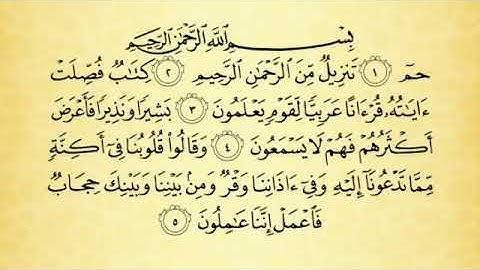 بِسْمِ ٱللَّهِ ٱلرَّحْمَٰنِ ٱلرَّحِيمِ
حمٓ ١ تَنزِيلٌ مِّنَ ٱلرَّحْمَٰنِ ٱلرَّحِيمِ ٢ كِتَٰبٌ فُصِّلَتْ
ءَايَٰتُهُۥ قُرْءَانًا عَرَبِيًّا لِّقَوْمٍ يَعْلَمُونَ ٣ بَشِيرًا وَنَذِيرًا فَأَعْرَضَ
أَكْثَرُهُمْ فَهُمْ لَا يَسْمَعُونَ ٤ وَقَالُوا۟ قُلُوبُنَا فِىٓ أَكِنَّةٍ
مِّمَّا تَدْعُونَآ إِلَيْهِ وَفِىٓ ءَاذَانِنَا وَقْرٌ وَمِنۢ بَيْنِنَا وَبَيْنِكَ حِجَابٌ
فَٱعْمَلْ إِنَّنَا عَٰمِلُونَ ٥